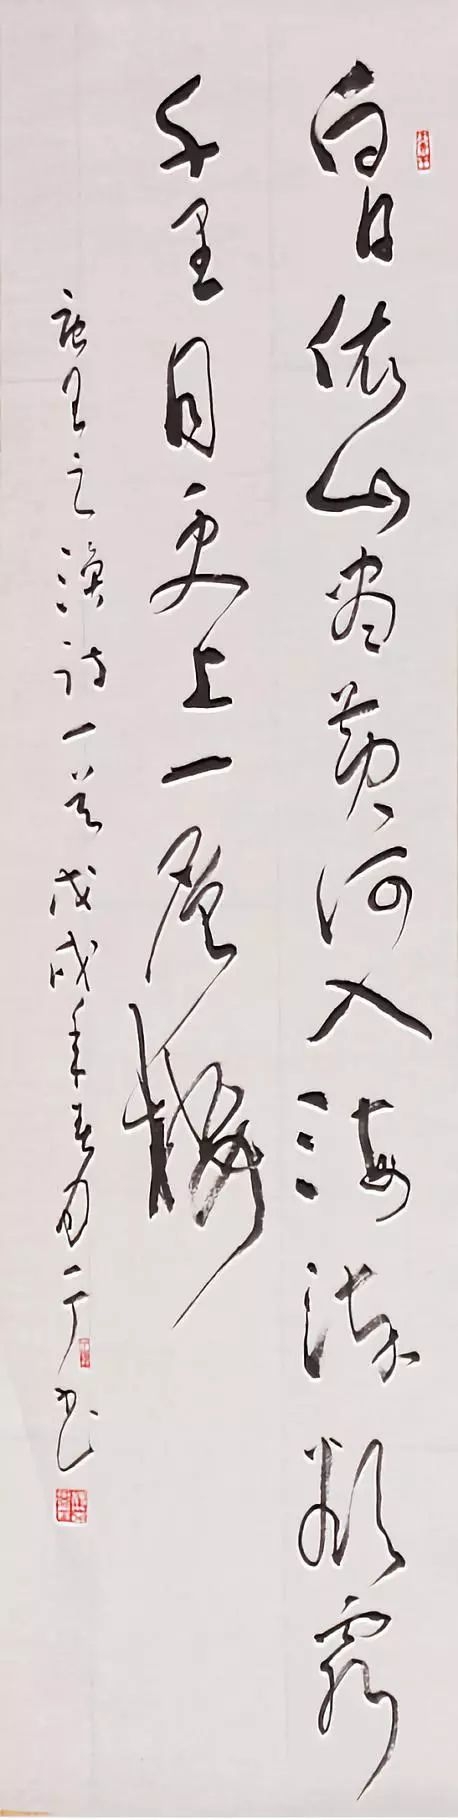 白日依山尽黄河入海流欲穷
千里目更上一层楼
唐王之涣诗一首戊戌年春月一广书